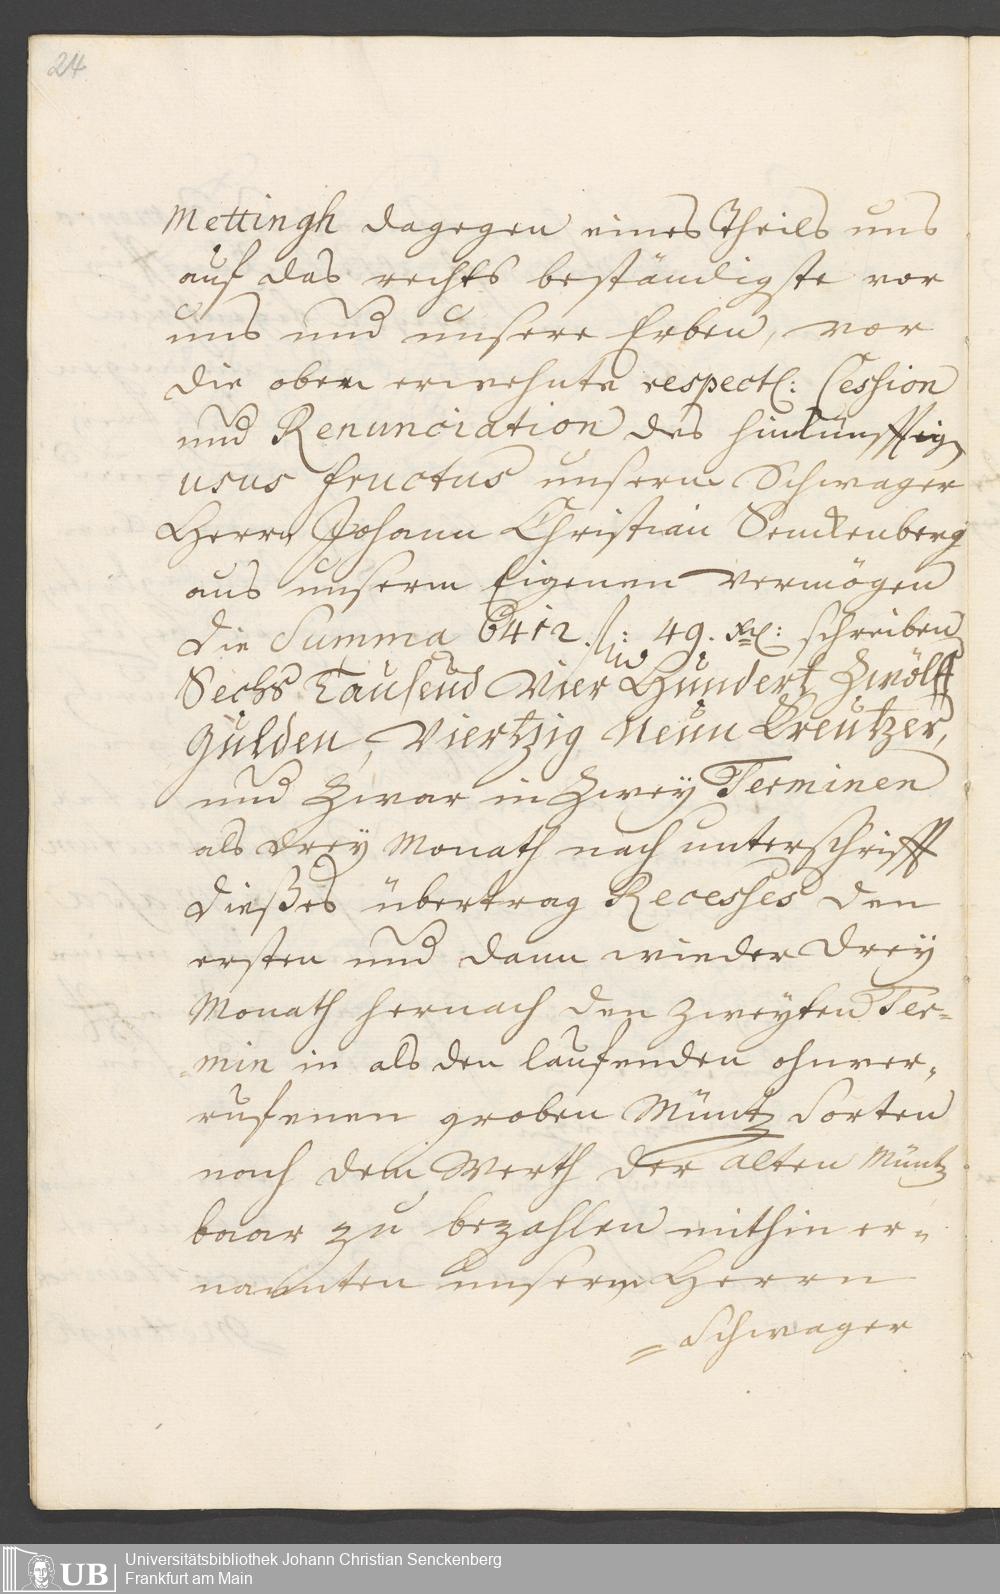 24
Mettingh dagegen eines Theils uns
auf das rechts beständigste vor
uns und unsere Erben, vor
die oben erwehnte respectl: Cession
und Renunciation des hinkünfftig
usus fructus unserm Schwager
Herrn Johann Christian Senckenberg
aus unserm Eigenen Vermögen
die Summa 6412 f: 49. Xr: schreiben
Sechs Tausend Vier Hundert Zwölff
Gulden, Viertzig Neun Kreutzer,
und Zwar in Zwey Terminen
als drey Monath nach unterschrifft
dießes übertrag Recesses den
ersten und dann wieder drey
Monath hernach den zweyten Ter-
min in als den lauffenden ohnver-
ruffenen groben Müntz Sorten
nach dem Werth der alten Müntz
baar zu bezahlen mithin er-
nannten unserm Herrn
= Schwager
UB Universitätsbibliothek Johann Christian Senckenberg
Frankfurt am Main